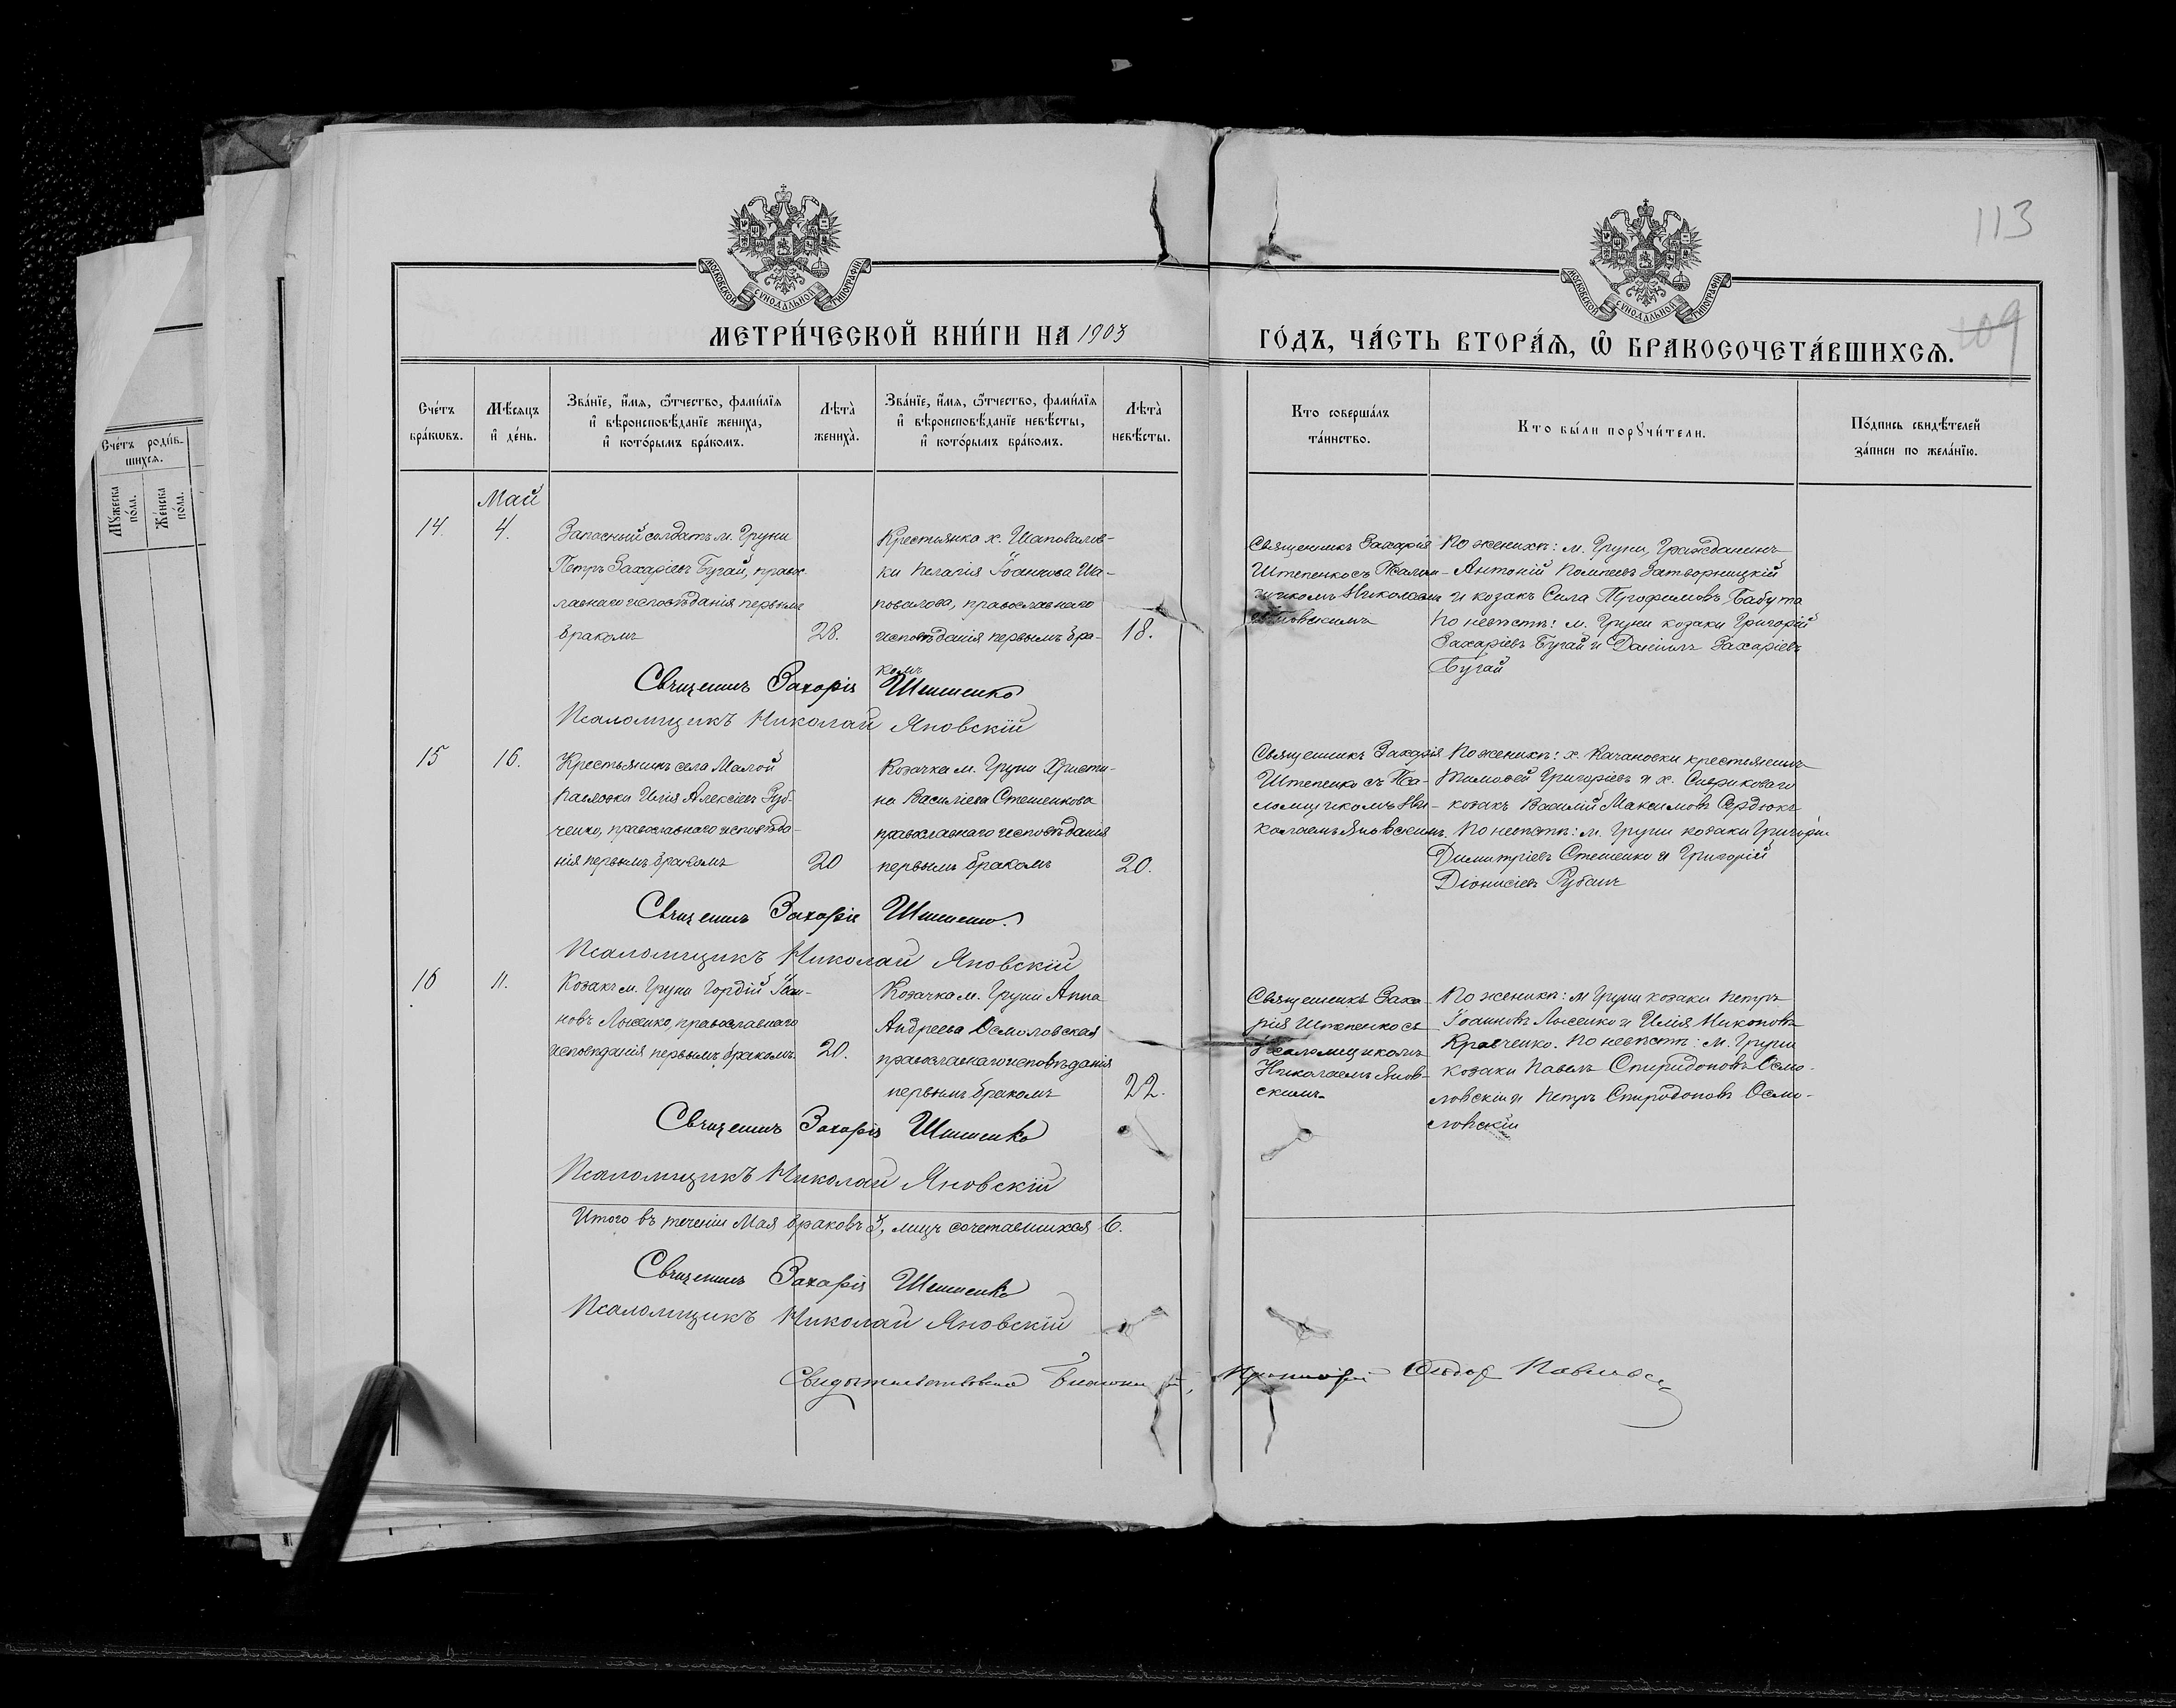 113
109
МОСКОВСКОЙ СУНОДАЛЬНОЙ ТИПОГРАФІИ
МОСКОВСКОЙ СУНОДАЛЬНОЙ ТИПОГРАФІИ
МЕТРИ́ЧЕСКОЙ КНИ́ГИ НА 1903
ГО́ДЪ, ЧА́СТЬ ВТОРА́Ѧ, Ѽ БРАКОСОЧЕТА́ВШИХСѦ.
Сче́тъ родив-
шихсѧ.
Мꙋжеска по́ла.
Же́нска по́ла.
Сче́тъ
бра́кѡвъ.
Мѣ́сѧцъ
и҆ де́нь.
Зва́нїе, и҆́мѧ, ѻ҆́тчество, фами́лїѧ
и҆ вѣроисповѣ́данїе жениха̀,
и҆ кото́рымъ бра́комъ.
Лѣта̀
жениха̀.
Зва́нїе, и҆́мѧ, ѻ҆́тчество, фами́лїѧ
и҆ вѣроисповѣ́данїе невѣ́сты,
и҆ кото́рымъ бра́комъ.
Лѣта̀
невѣ́сты.
Кто соверша́лъ
та́инство.
Кто бы́ли порꙋчи́тели.
По́дпись свидѣ́телей
за́писи по жела́нїю.
Май
14. 4.
Запасный солдатъ м. Груни
Петръ Захаріевъ Бугай, право-
славнаго исповѣданія первымъ
бракомъ 28.
Крестьянка х. Шаповалов-
ки Пелагія Іоаннова Ша-
повалова, православнаго
исповѣданія первымъ бра- 18.
комъ
Священникъ Захарія
Штепенко съ Псалом-
щикомъ Николаемъ
Яновскимъ
По женихѣ: м. Груни, Гражданинъ
Антоній Помпеевъ Затворницкій
и козакъ Сила Трофимовъ Бабута
По невѣстѣ: м. Груни козаки Григорій
Захаріевъ Бугай и Даніилъ Захаріевъ
Бугай
Священникъ Захарія Штепенко
Псаломщикъ Николай Яновскій
15 16.
Крестьянинъ села Малой
Павловки Илія Алексіевъ Зуб-
ченко, православнаго исповѣда-
нія первымъ бракомъ 20
Козачка м. Груни Христи-
на Василіева Стешенкова
православнаго исповѣданія
первымъ бракомъ 20.
Священникъ Захарія
Штепенко съ Пса-
ломщикомъ Ни-
колаемъ Яновскимъ.
По женихѣ: х. Качановки крестьянинъ
Тимофей Григоріевъ и х.
козакъ Василій Максимовъ Сердюкъ
По невѣстѣ: м. Груни козаки Григорій
Димитріевъ Стешенко и Григорій
Діонисіевъ Рубанъ
Священникъ Захарія Штепенко
Псаломщикъ Николай Яновскій
16 11.
Козакъ м. Груни Гордій Іоан-
новъ Лысенко, православнаго
исповѣданія первымъ бракомъ. 20.
Козачка м. Груни Анна
Андреева Осмоловская
православнаго исповѣданія
первымъ бракомъ 22.
Священникъ Заха-
рія Штепенко съ
Псаломщикомъ
Николаемъ Янов-
скимъ
По женихѣ: м Груни козаки Петръ
Іоанновъ Лысенко и Илія Никоновъ
Кравченко. По невѣстѣ: м. Груни
козаки Павелъ Спиридоновъ Осмо-
ловскій и Петръ Спиридоновъ Осмо-
ловскій
Священникъ Захарія Штепенко
Псаломщикъ Николай Яновскій
Итого въ теченіи Мая браковъ 3, лицъ сочетавшихся 6.
Священникъ Захарія Штепенко
Псаломщикъ Николай Яновскій
Свидѣтельствовалъ Благочинный, Протоіерей